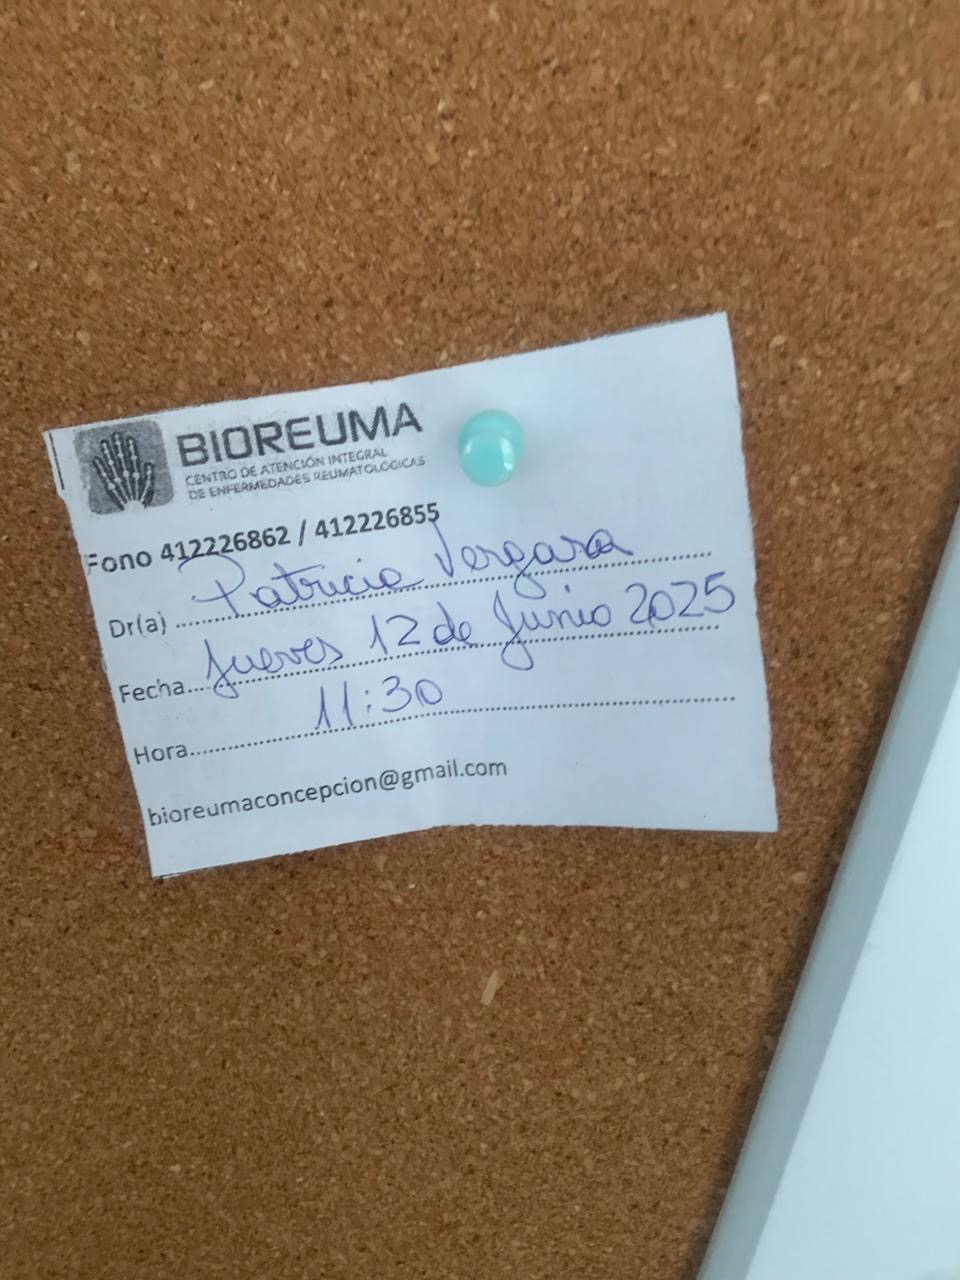 BIOREUMA
CENTRO DE ATENCIÓN INTEGRAL
DE ENFERMEDADES REUMATOLÓGICAS
Fono 412226862 / 412226855
Dr(a) Patricia Vergara
Fecha Jueves 12 de Junio 2025
Hora 11:30
bioreumaconcepcion@gmail.com